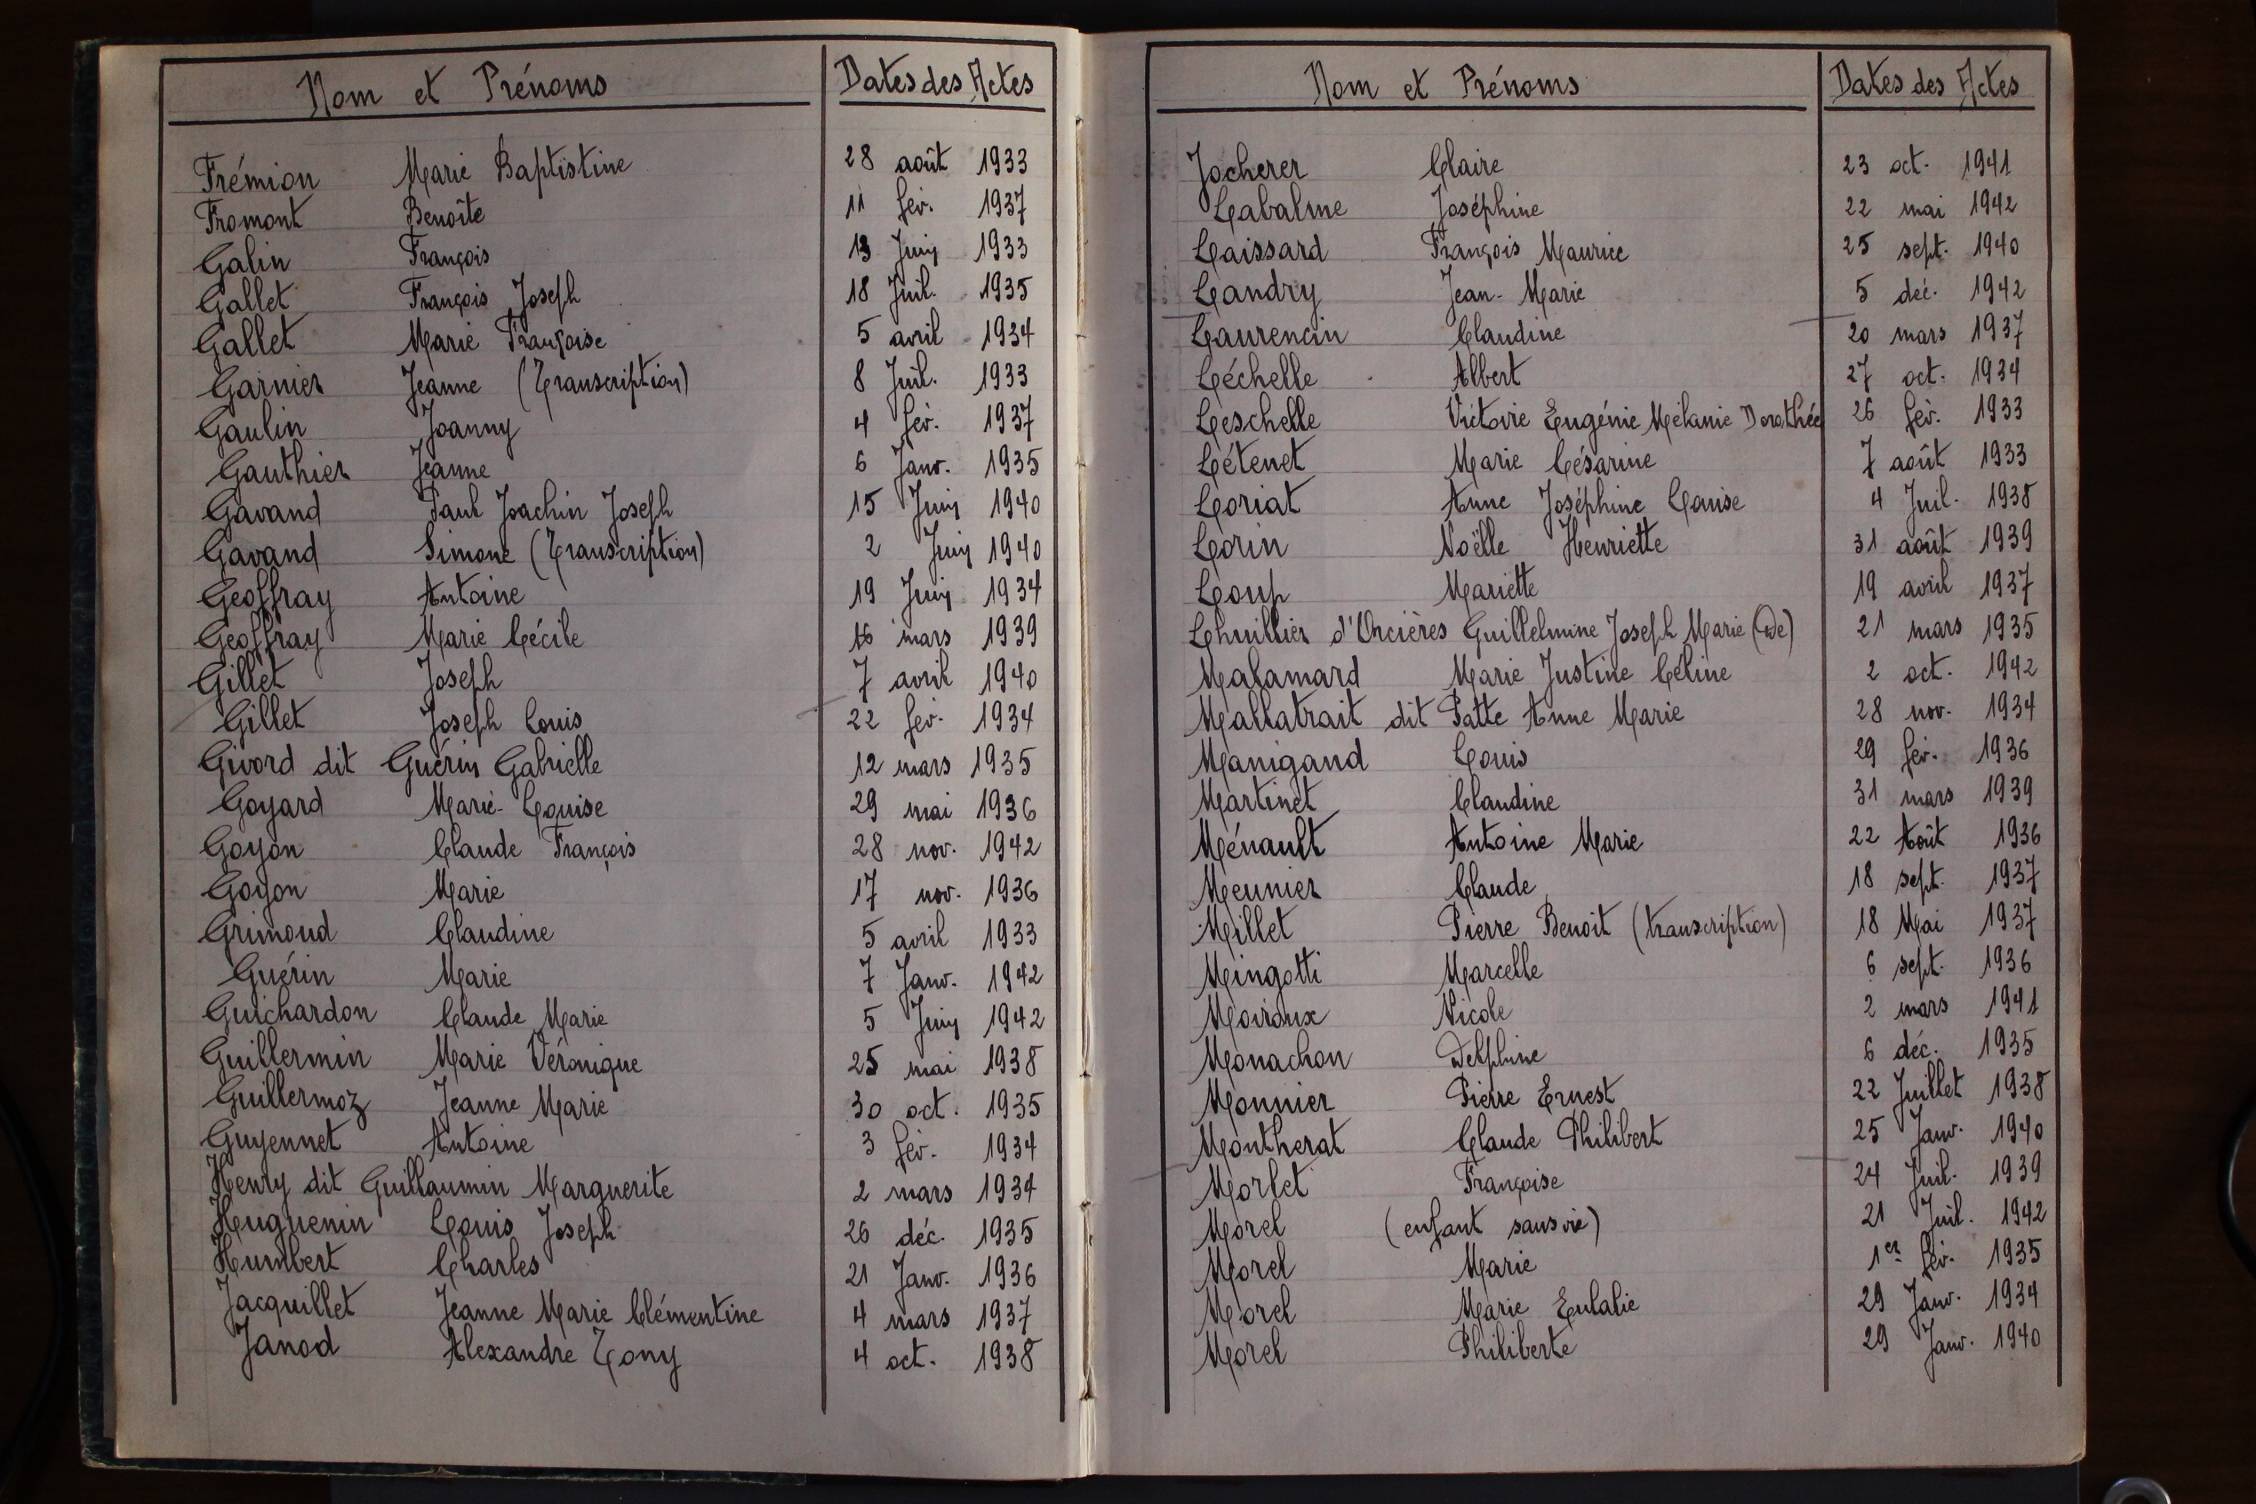 Nom et Prénoms Dates des Actes
Frémion Marie Baptistine 28 août 1933
Fromont Benoîte 11 fév. 1937
Galin François 13 Juin 1933
Gallet François Joseph 18 Juil. 1935
Gallet Marie Françoise 5 avril 1934
Garnier Jeanne (Transcription) 8 Juil. 1933
Gaulin Joanny 4 fév. 1937
Gauthier Jeanne 6 Janv. 1935
Gavand Paul Joachin Joseph 15 Juin 1940
Gavand Simone (Transcription) 2 Juin 1940
Geoffray Antoine 19 Juin 1934
Geoffray Marie Cécile 16 mars 1939
Gillet Joseph 7 avril 1940
Gillet Joseph Louis 22 fév. 1934
Givord dit Guérin Gabrielle 12 mars 1935
Goyard Marie-Louise 29 mai 1936
Goyon Claude François 28 nov. 1942
Goyon Marie 17 nov. 1936
Grimoud Claudine 5 avril 1933
Guérin Marie 7 Janv. 1942
Guichardon Claude Marie 5 Juin 1942
Guillermin Marie Véronique 25 mai 1938
Guillermoz Jeanne Marie 30 oct. 1935
Guyennet Antoine 3 fév. 1934
Henry dit Guillaumin Marguerite 2 mars 1934
Huguenin Louis Joseph 26 déc. 1935
Humbert Charles 21 Janv. 1936
Jacquillet Jeanne Marie Clémentine 4 mars 1937
Janod Alexandre Tony 4 oct. 1938
Nom et Prénoms Dates des Actes
Jocherer Claire 23 oct. 1941
Labalme Joséphine 22 mai 1942
Laissard François Maurice 25 sept. 1940
Landry Jean-Marie 5 déc. 1942
Laurencin Claudine 20 mars 1937
Léchelle Albert 27 oct. 1934
Leschelle Victoire Eugénie Mélanie Dorothée 26 fév. 1933
Létenet Marie Césarine 7 août 1933
Loriat Anne Joséphine Louise 4 Juil. 1938
Lorin Noëlle Henriette 31 août 1939
Loup Mariette 19 avril 1937
Lhuillier d'Orcières Guillelmine Joseph Marie (De) 21 mars 1935
Malamard Marie Justine Céline 2 oct. 1942
Mallatrait dit Patte Anne Marie 28 nov. 1934
Manigand Louis 29 fév. 1936
Martinet Claudine 31 mars 1939
Ménault Antoine Marie 22 Août 1936
Meunier Claude 18 sept. 1937
Millet Pierre Benoit (transcription) 18 Mai 1937
Mingotti Marcelle 6 sept. 1936
Moiroux Nicole 2 mars 1941
Monachon Delphine 6 déc. 1935
Monnier Pierre Ernest 22 Juillet 1938
Montherat Claude Philibert 25 Janv. 1940
Morlet Françoise 24 Juil. 1939
Morel (enfant sans vie) 21 Juil. 1942
Morel Marie 1er fév. 1935
Morel Marie Eulalie 29 Janv. 1934
Morel Philiberte 29 Janv. 1940